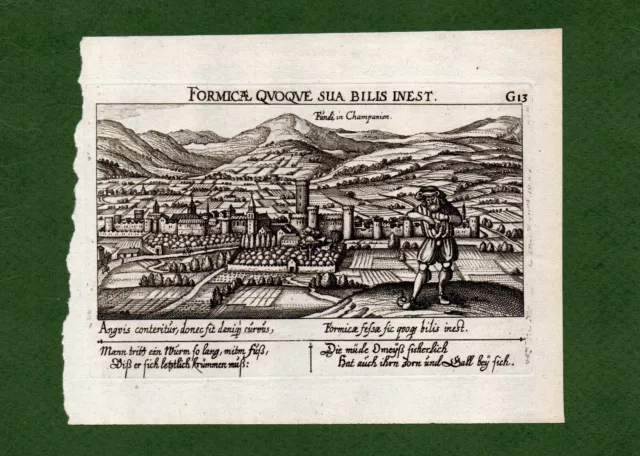 FORMICÆ QVOQVE SUA BILIS INEST.
G13
Fundi in Champanien.
Angvis conteritur, donec fit deniq curvus,
Formicæ fessæ sic quoq bilis inest.
Mann tritt ein Wurm so lang, mitm fuß,
Biß er sich letztlich krümmen muß:
Die müde Omeyß sicherlich
Hat auch ihrn Zorn und Gall bey sich.